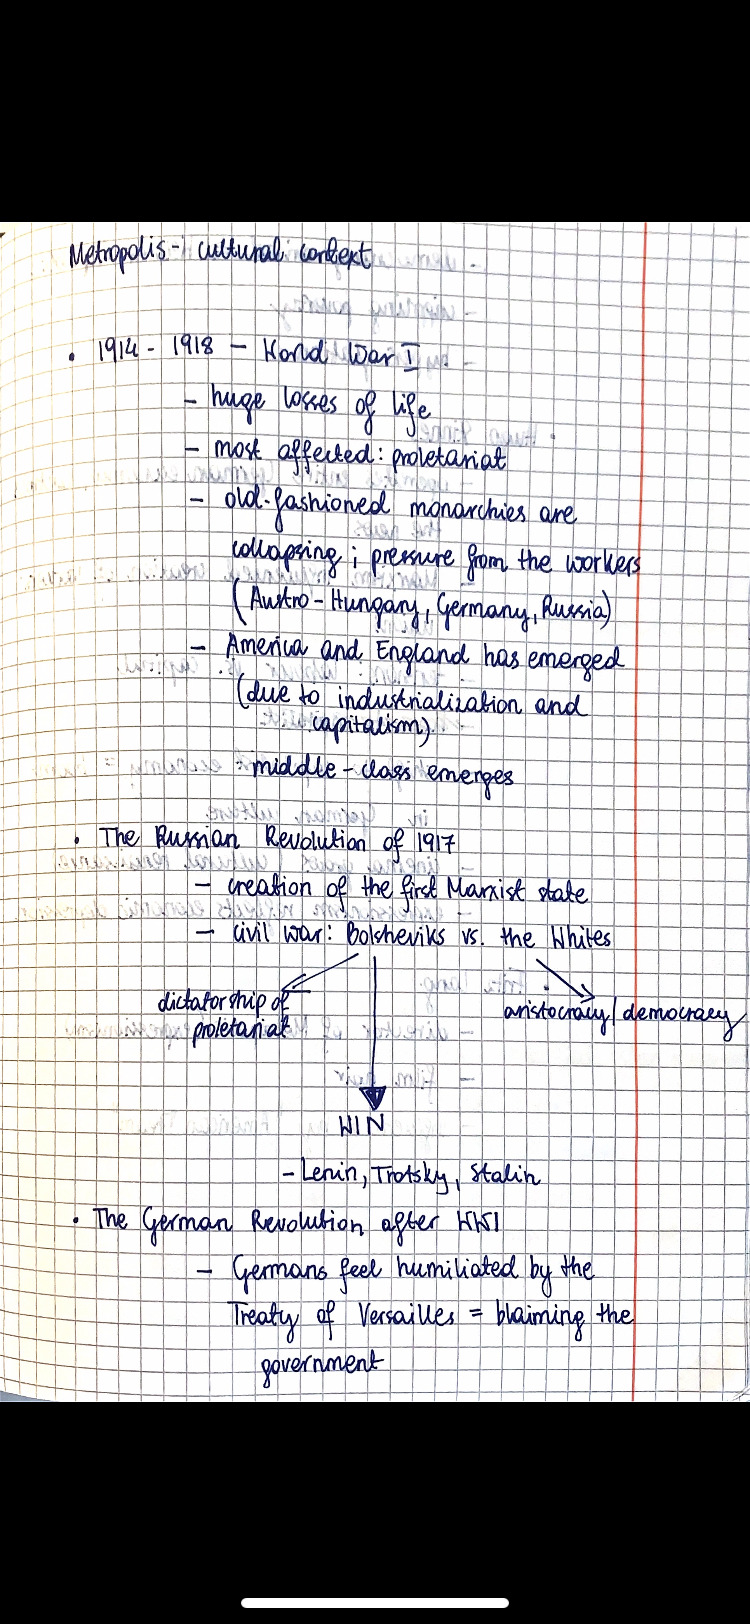 Metropolis - cultural context
• 1914 - 1918 - World War I
- huge losses of life
- most affected: proletariat
- old-fashioned monarchies are
collapsing; pressure from the workers
(Austro-Hungary, Germany, Russia)
- America and England has emerged
(due to industrialization and
capitalism)
middle-class emerges
• The Russian Revolution of 1917
- creation of the first Marxist state
- civil war: Bolsheviks vs. the Whites
dictatorship of
proletariat
aristocracy/democracy
WIN
- Lenin, Trotsky, Stalin
• The German Revolution after WWI
- Germans feel humiliated by the
Treaty of Versailles = blaiming the
government